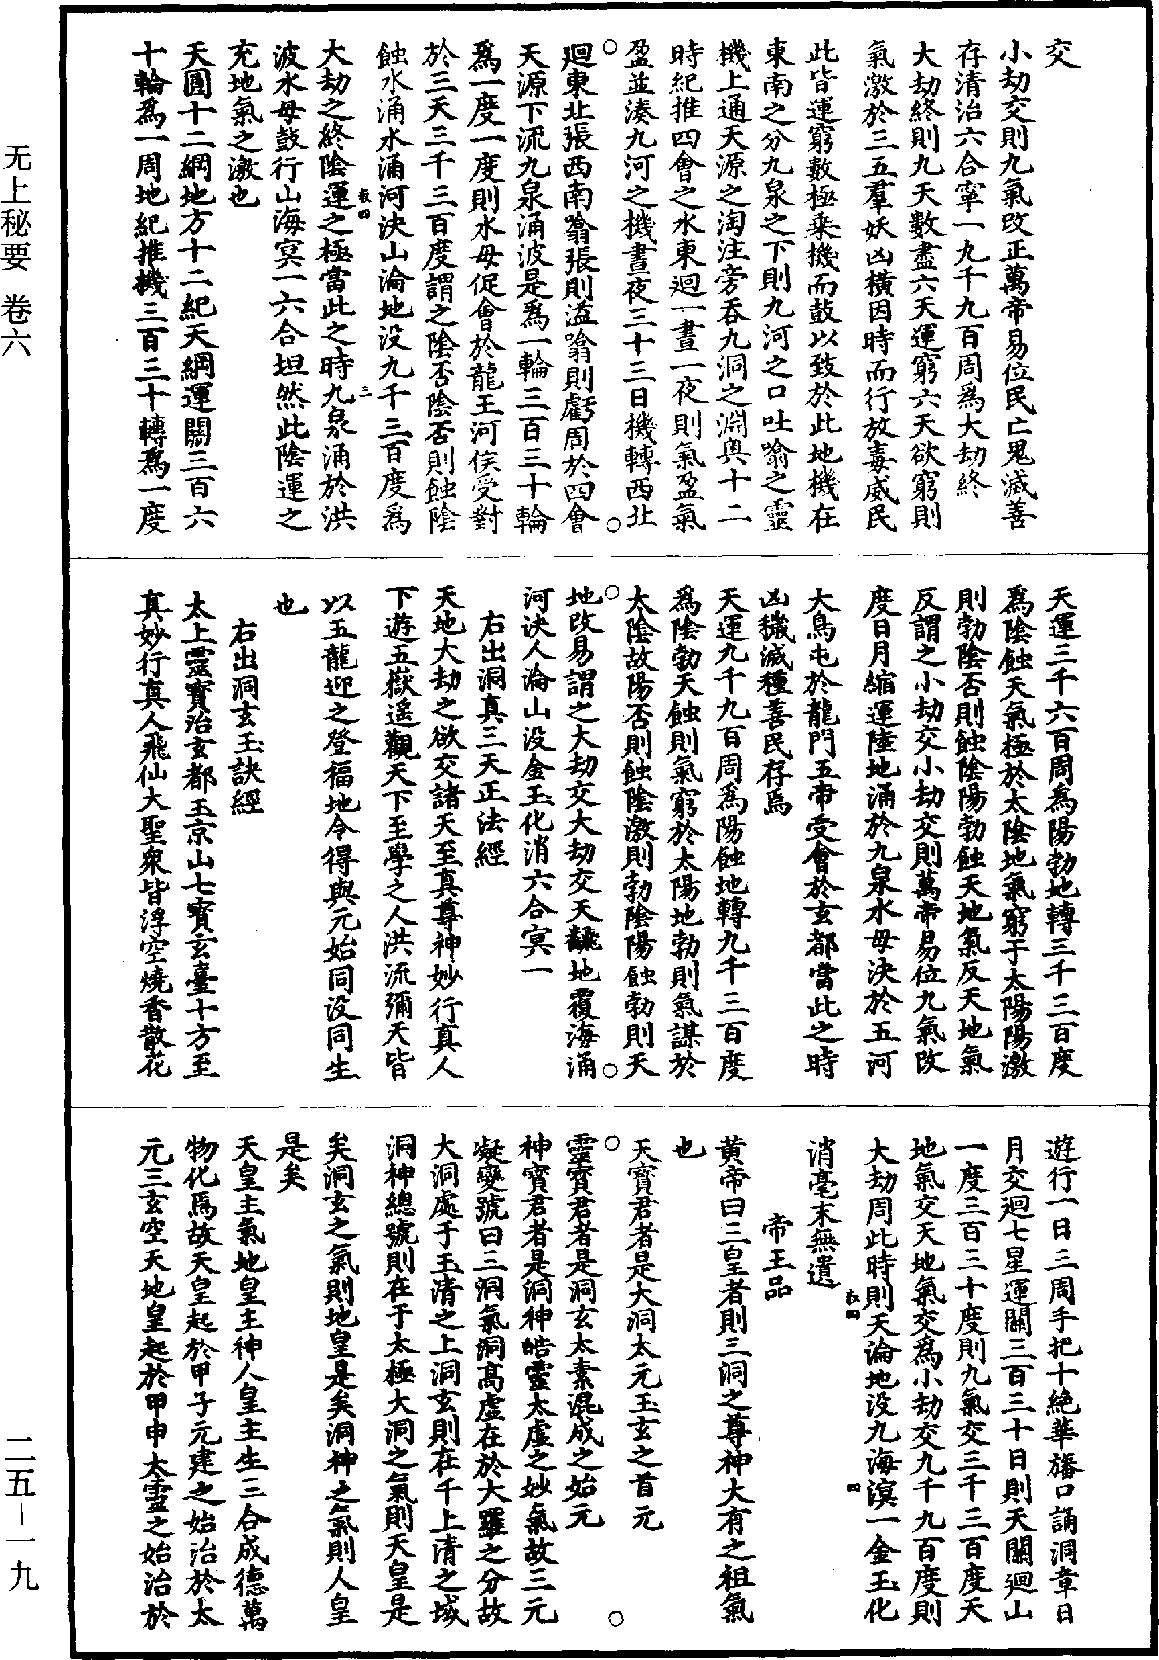 交
小劫交則九氣改正萬帝易位民亡鬼滅善
存清治六合寧一九千九百周為大劫終
大劫終則九天數盡六天運窮六天欲窮則
氣激於三五羣妖凶橫因時而行放毒威民
此皆運窮數極乘機而鼓以致於此地機在
東南之分九泉之下則九河之口吐噏之靈
機上通天源之淘注旁吞九洞之淵輿十二
時紀推四會之水東迴一晝一夜則氣盈氣
盈並湊九河之機晝夜三十三日機轉西北
迴東北張西南噏張則溢噏則虧周於四會
天源下流九泉涌波是為一輪三百三十輪
為一度一度則水母促會於龍王河侯受對
於三天三千三百度謂之陰否陰否則蝕陰
蝕水涌水涌河決山淪地沒九千三百度為
大劫之終陰運之極當此之時九泉涌於洪
波水母鼓行山海冥一六合坦然此陰運之
充地氣之激也
天圓十二綱地方十二紀天綱運關三百六
十輪為一周地紀推機三百三十轉為一度
天運三千六百周為陽勃地轉三千三百度
為陰蝕天氣極於太陰地氣窮于太陽陽激
則勃陰否則蝕陰陽勃蝕天地氣反天地氣
反謂之小劫交小劫交則萬帝易位九氣改
度日月縮運陸地涌於九泉水母決於五河
大鳥屯於龍門五帝受會於玄都當此之時
凶穢滅種善民存焉
天運九千九百周為陽蝕地轉九千三百度
為陰勃天蝕則氣窮於太陽地勃則氣謀於
太陰故陽否則蝕陰激則勃陰陽蝕勃則天
地改易謂之大劫交大劫交天飜地覆海涌
河決人淪山沒金玉化消六合冥一
右出洞真三天正法經
天地大劫之欲交諸天至真尊神妙行真人
下遊五嶽遙觀天下至學之人洪流彌天皆
以五龍迎之登福地令得與元始同沒同生
也
右出洞玄玉訣經
太上靈寶治玄都玉京山七寶玄臺十方至
真妙行真人飛仙大聖眾皆浮空燒香散花
遊行一日三周手把十絕華旛口誦洞章日
月交迴七星運關三百三十日則天關迴山
一度三百三十度則九氣交三千三百度天
地氣交天地氣交為小劫交九千九百度則
大劫周此時則天淪地沒九海溟一金玉化
消毫末無遺
帝王品
黃帝曰三皇者則三洞之尊神大有之祖氣
也
天寶君者是大洞太元玉玄之首元
靈寶君者是洞玄太素混成之始元
神寶君者是洞神皓靈太虛之妙氣故三元
凝變號曰三洞氣洞高虛在於大羅之分故
大洞處于玉清之上洞玄則在于上清之域
洞神總號則在于太極大洞之氣則天皇是
矣洞玄之氣則地皇是矣洞神之氣則人皇
是矣
天皇主氣地皇主神人皇主生三合成德萬
物化焉故天皇起於甲子元建之始治於太
元三玄空天地皇起於甲申太靈之始治於
无上秘要 卷六
二五－一九